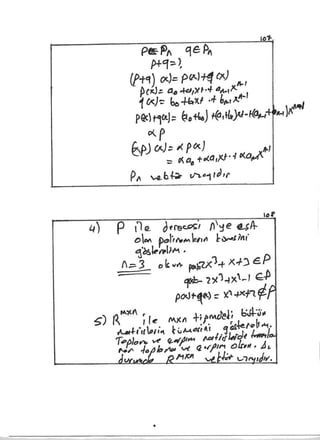 107
p∈Pₙ q∈Pₙ
p+q=?
(p+q)(x)= p(x)+q(x)
p(x)= a₀+a₁x+..+aₙ₋₁xⁿ⁻¹
q(x)= b₀+b₁x+..+bₙ₋₁xⁿ⁻¹
p(x)+q(x)= (a₀+b₀)+(a₁+b₁)x+..+(aₙ₋₁+bₙ₋₁)xⁿ⁻¹
αp
(αp)(x)= αp(x)
= αa₀+αa₁x+..+αaₙ₋₁xⁿ⁻¹
Pₙ vektör uzayıdır
108
4) P ile derecesi n'ye eşit
olan polinomların kümesini
gösterelim.
n=3 olsun p(x)=2x³+x+3 ∈P
q(x)=-2x³+x²-1 ∈P
p(x)+q(x)= x²+x+2 ∉P
5) Rᵐˣⁿ ile mxn tipindeki bütün
matrislerin kümesini gösterelim.
Toplam ve çarpım matrislerde
toplama ve çarpım olsun. Bu
durumda Rᵐˣⁿ vektör uzayıdır.